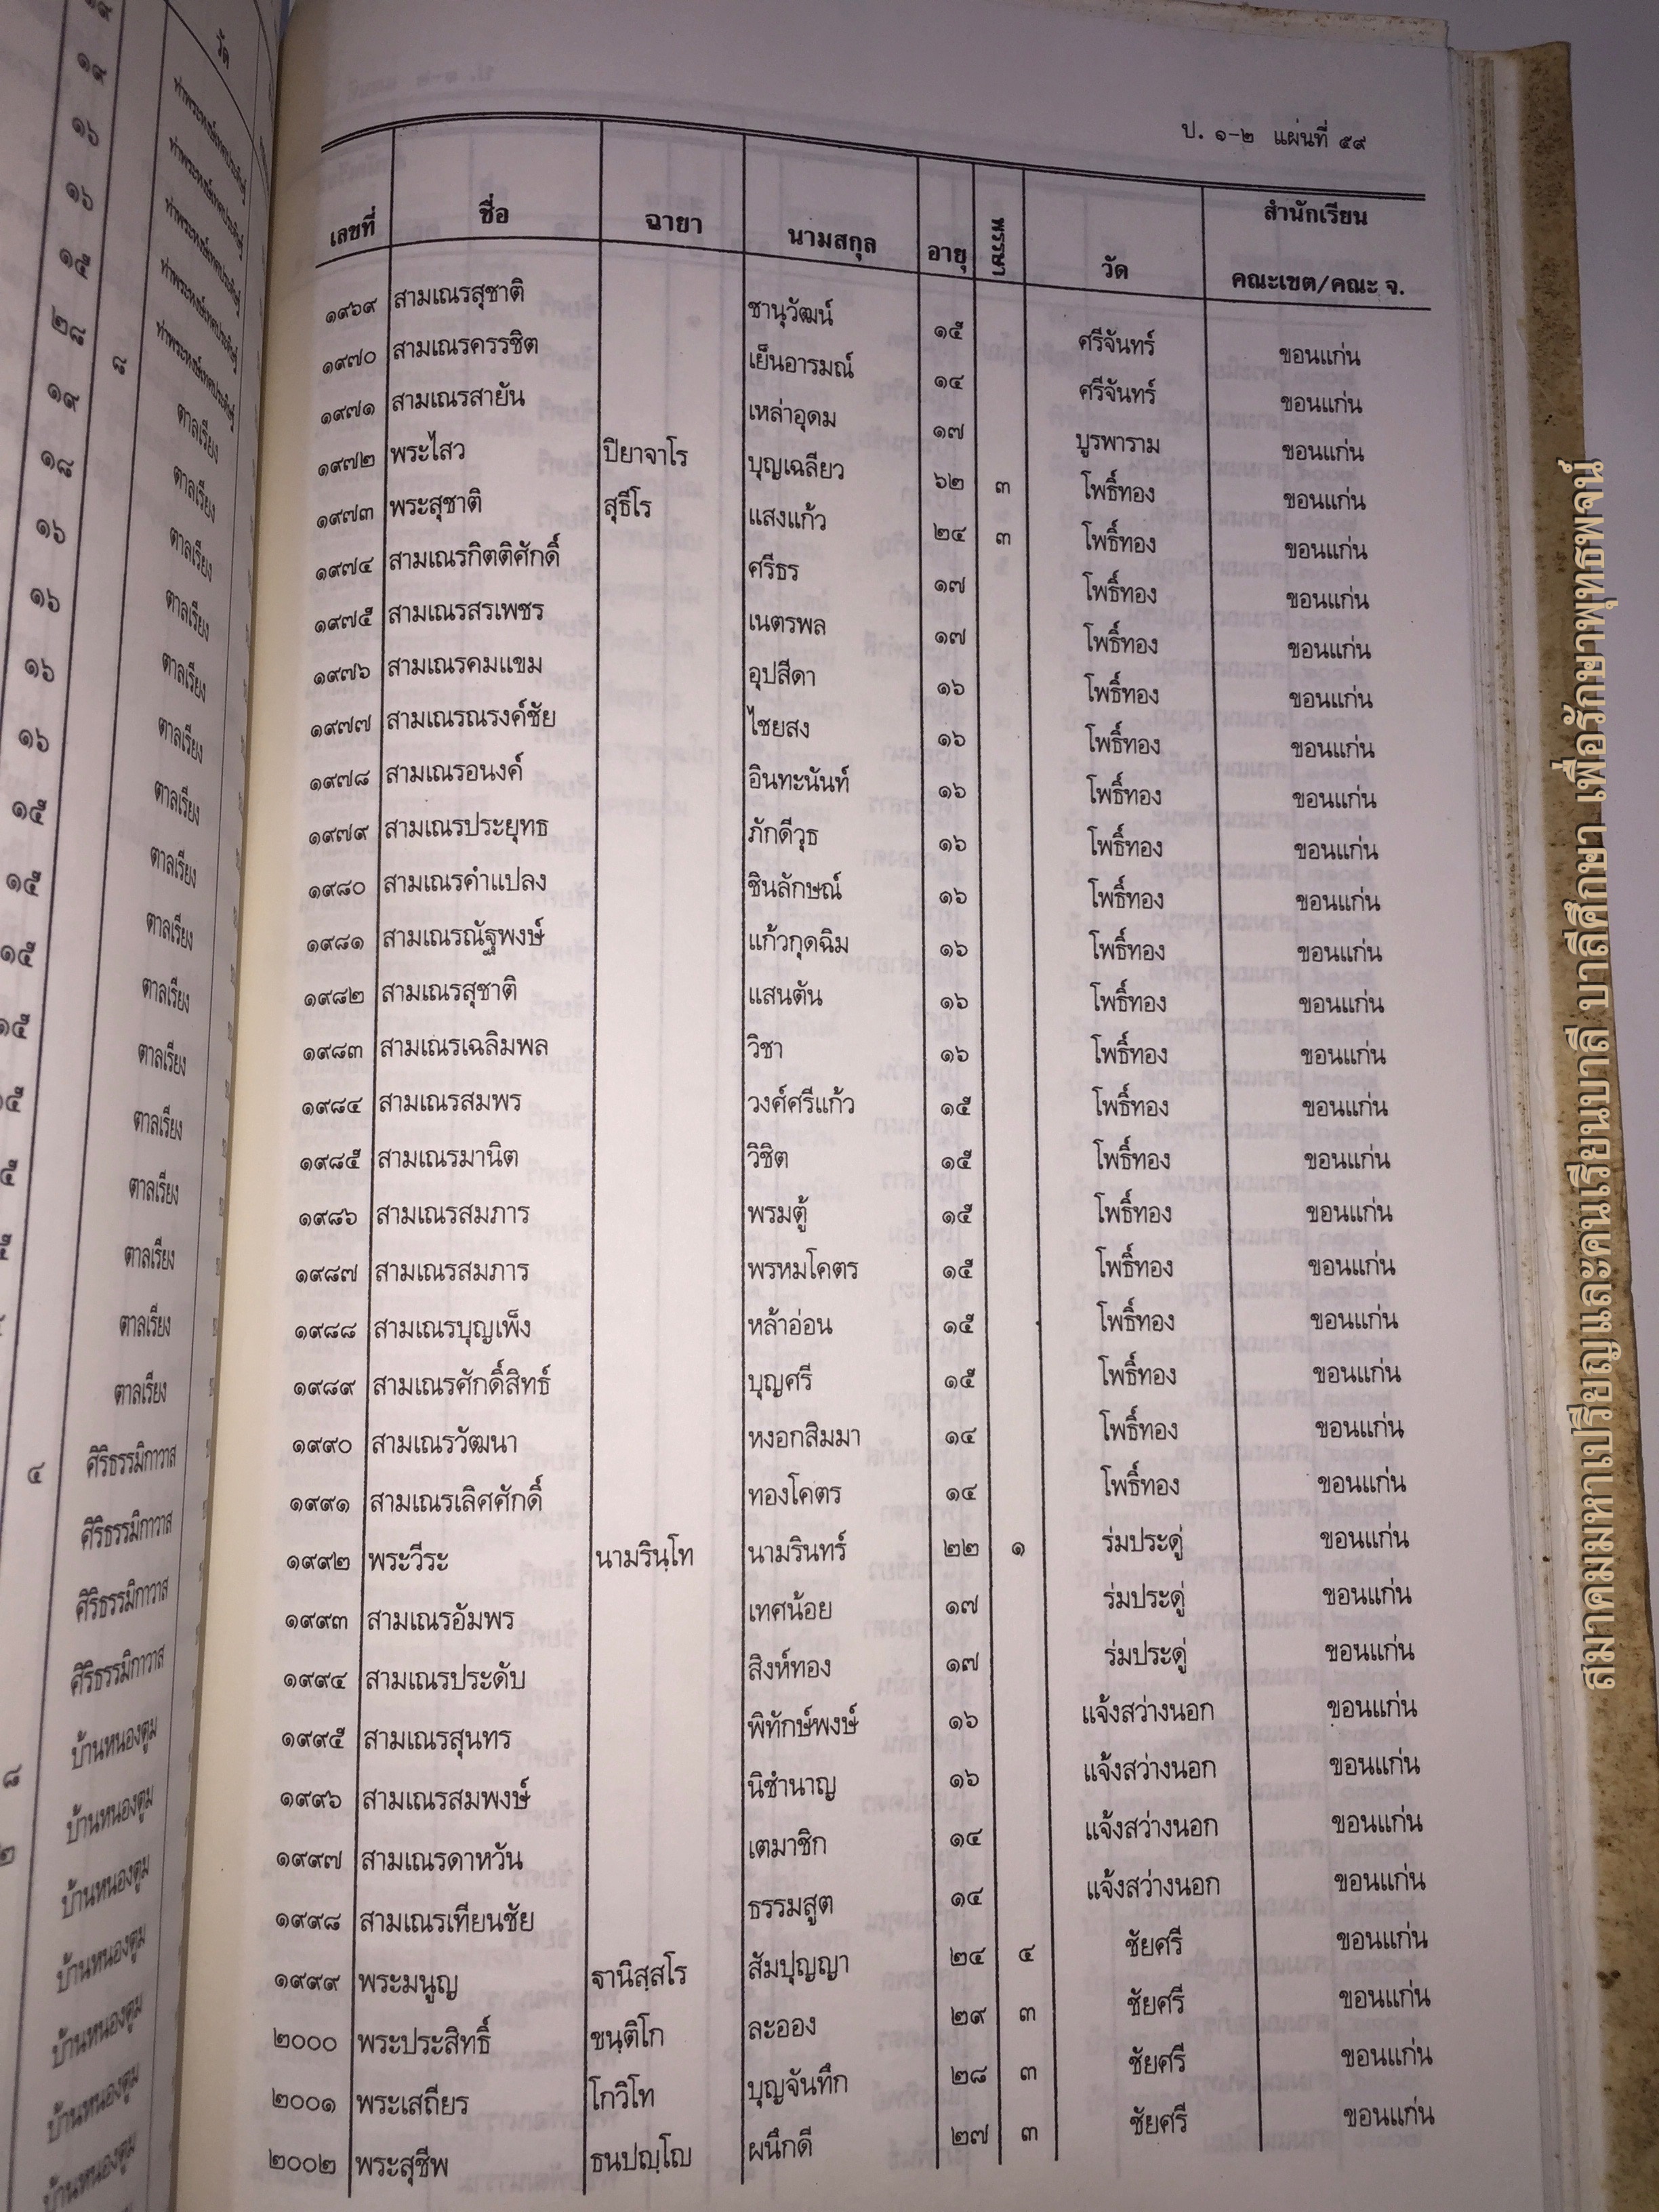 ป. ๑-๒ แผ่นที่ ๕๙
เลขที่ ชื่อ ฉายา นามสกุล อายุ พรรษา วัด สำนักเรียน คณะเขต/คณะ จ.
๑๙๖๙ สามเณรสุชาติ ชานุวัฒน์ ๑๕ ศรีจันทร์ ขอนแก่น
๑๙๗๐ สามเณรครรชิต เย็นอารมณ์ ๑๔ ศรีจันทร์ ขอนแก่น
๑๙๗๑ สามเณรสายัน เหล่าอุดม ๑๗ บูรพาราม ขอนแก่น
๑๙๗๒ พระไสว ปิยาจาโร บุญเฉลียว ๖๒ ๓ โพธิ์ทอง ขอนแก่น
๑๙๗๓ พระสุชาติ สุธีโร แสงแก้ว ๒๔ ๓ โพธิ์ทอง ขอนแก่น
๑๙๗๔ สามเณรกิตติศักดิ์ ศรีธร ๑๗ โพธิ์ทอง ขอนแก่น
๑๙๗๕ สามเณรสรเพชร เนตรพล ๑๗ โพธิ์ทอง ขอนแก่น
๑๙๗๖ สามเณรคมแขม อุปสีดา ๑๖ โพธิ์ทอง ขอนแก่น
๑๙๗๗ สามเณรณรงค์ชัย ไชยสง ๑๖ โพธิ์ทอง ขอนแก่น
๑๙๗๘ สามเณรอนงค์ อินทะนันท์ ๑๖ โพธิ์ทอง ขอนแก่น
๑๙๗๙ สามเณรประยุทธ ภักดีวุธ ๑๖ โพธิ์ทอง ขอนแก่น
๑๙๘๐ สามเณรคำแปลง ชินลักษณ์ ๑๖ โพธิ์ทอง ขอนแก่น
๑๙๘๑ สามเณรณัฐพงษ์ แก้วกุดฉิม ๑๖ โพธิ์ทอง ขอนแก่น
๑๙๘๒ สามเณรสุชาติ แสนตัน ๑๖ โพธิ์ทอง ขอนแก่น
๑๙๘๓ สามเณรเฉลิมพล วิชา ๑๖ โพธิ์ทอง ขอนแก่น
๑๙๘๔ สามเณรสมพร วงศ์ศรีแก้ว ๑๕ โพธิ์ทอง ขอนแก่น
๑๙๘๕ สามเณรมานิต วิชิต ๑๕ โพธิ์ทอง ขอนแก่น
๑๙๘๖ สามเณรสมภาร พรมตู้ ๑๕ โพธิ์ทอง ขอนแก่น
๑๙๘๗ สามเณรสมภาร พรหมโคตร ๑๕ โพธิ์ทอง ขอนแก่น
๑๙๘๘ สามเณรบุญเพ็ง หล้าอ่อน ๑๕ โพธิ์ทอง ขอนแก่น
๑๙๘๙ สามเณรศักดิ์สิทธ์ บุญศรี ๑๕ โพธิ์ทอง ขอนแก่น
๑๙๙๐ สามเณรวัฒนา หงอกสิมมา ๑๔ โพธิ์ทอง ขอนแก่น
๑๙๙๑ สามเณรเลิศศักดิ์ ทองโคตร ๑๔ โพธิ์ทอง ขอนแก่น
๑๙๙๒ พระวีระ นามรินฺโท นามรินทร์ ๒๒ ๑ ร่มประดู่ ขอนแก่น
๑๙๙๓ สามเณรอัมพร เทศน้อย ๑๗ ร่มประดู่ ขอนแก่น
๑๙๙๔ สามเณรประดับ สิงห์ทอง ๑๗ ร่มประดู่ ขอนแก่น
๑๙๙๕ สามเณรสุนทร พิทักษ์พงษ์ ๑๖ แจ้งสว่างนอก ขอนแก่น
๑๙๙๖ สามเณรสมพงษ์ นิชำนาญ ๑๖ แจ้งสว่างนอก ขอนแก่น
๑๙๙๗ สามเณรดาหวัน เตมาชิก ๑๔ แจ้งสว่างนอก ขอนแก่น
๑๙๙๘ สามเณรเทียนชัย ธรรมสูต ๑๔ แจ้งสว่างนอก ขอนแก่น
๑๙๙๙ พระมนูญ ฐานิสฺสโร สัมปุญญา ๒๔ ๔ ชัยศรี ขอนแก่น
๒๐๐๐ พระประสิทธิ์ ขนฺติโก ละออง ๒๙ ๓ ชัยศรี ขอนแก่น
๒๐๐๑ พระเสถียร โกวิโท บุญจันทึก ๒๘ ๓ ชัยศรี ขอนแก่น
๒๐๐๒ พระสุชีพ ธนปญฺโญ ผนึกดี ๒๗ ๓ ชัยศรี ขอนแก่น
วัด
๑๙
๑๖
๑๖
๑๕
๒๘ ๘
๑๙ ตาลเรียง
๑๘ ตาลเรียง
๑๖ ตาลเรียง
๑๖ ตาลเรียง
๑๖ ตาลเรียง
๑๖ ตาลเรียง
๑๕ ตาลเรียง
๑๕ ตาลเรียง
๑๕ ตาลเรียง
๑๕ ตาลเรียง
ตาลเรียง
ตาลเรียง
ตาลเรียง
ตาลเรียง
ตาลเรียง
๔ ศิริธรรมิกาวาส
ศิริธรรมิกาวาส
ศิริธรรมิกาวาส
ศิริธรรมิกาวาส
๘ บ้านหนองตูม
บ้านหนองตูม
บ้านหนองตูม
บ้านหนองตูม
บ้านหนองตูม
บ้านหนองตูม
บ้านหนองตูม
สมาคมมหาเปรียญและคนเรียนบาลี บาลีศึกษา เพื่อรักษาพุทธพจน์